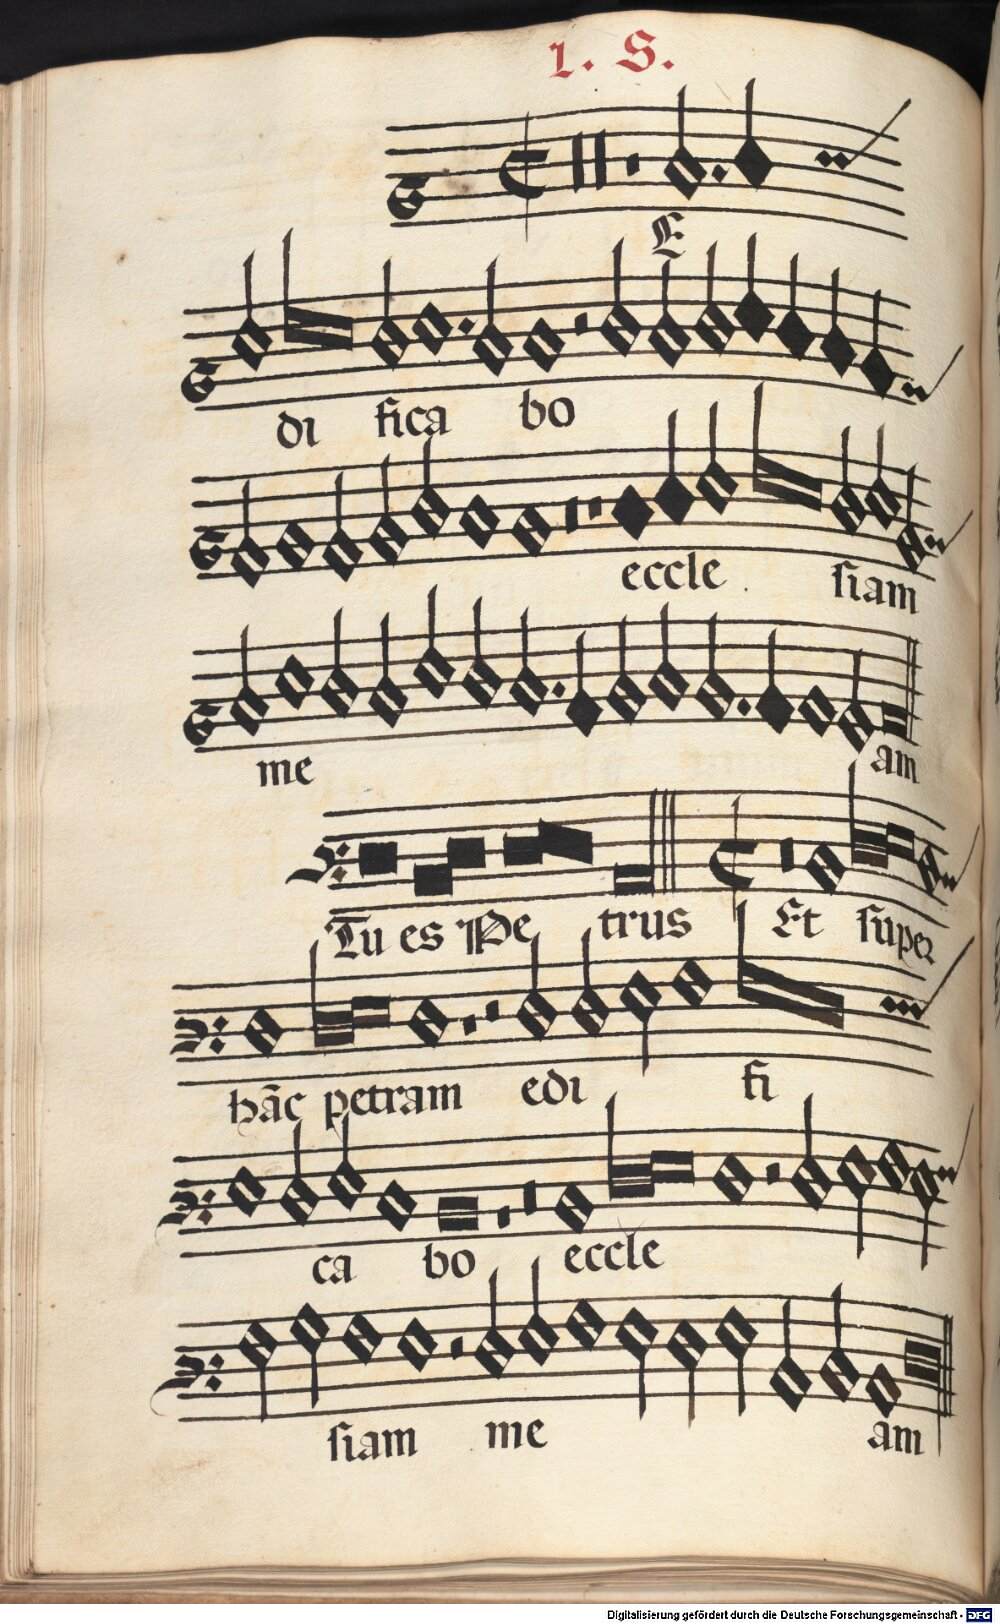 1. S.
E
di fica bo
eccle siam
me am
Tu es Pe trus Et super
hãc petram edi fi
ca bo eccle
siam me am
Digitalisierung gefördert durch die Deutsche Forschungsgemeinschaft - DFG